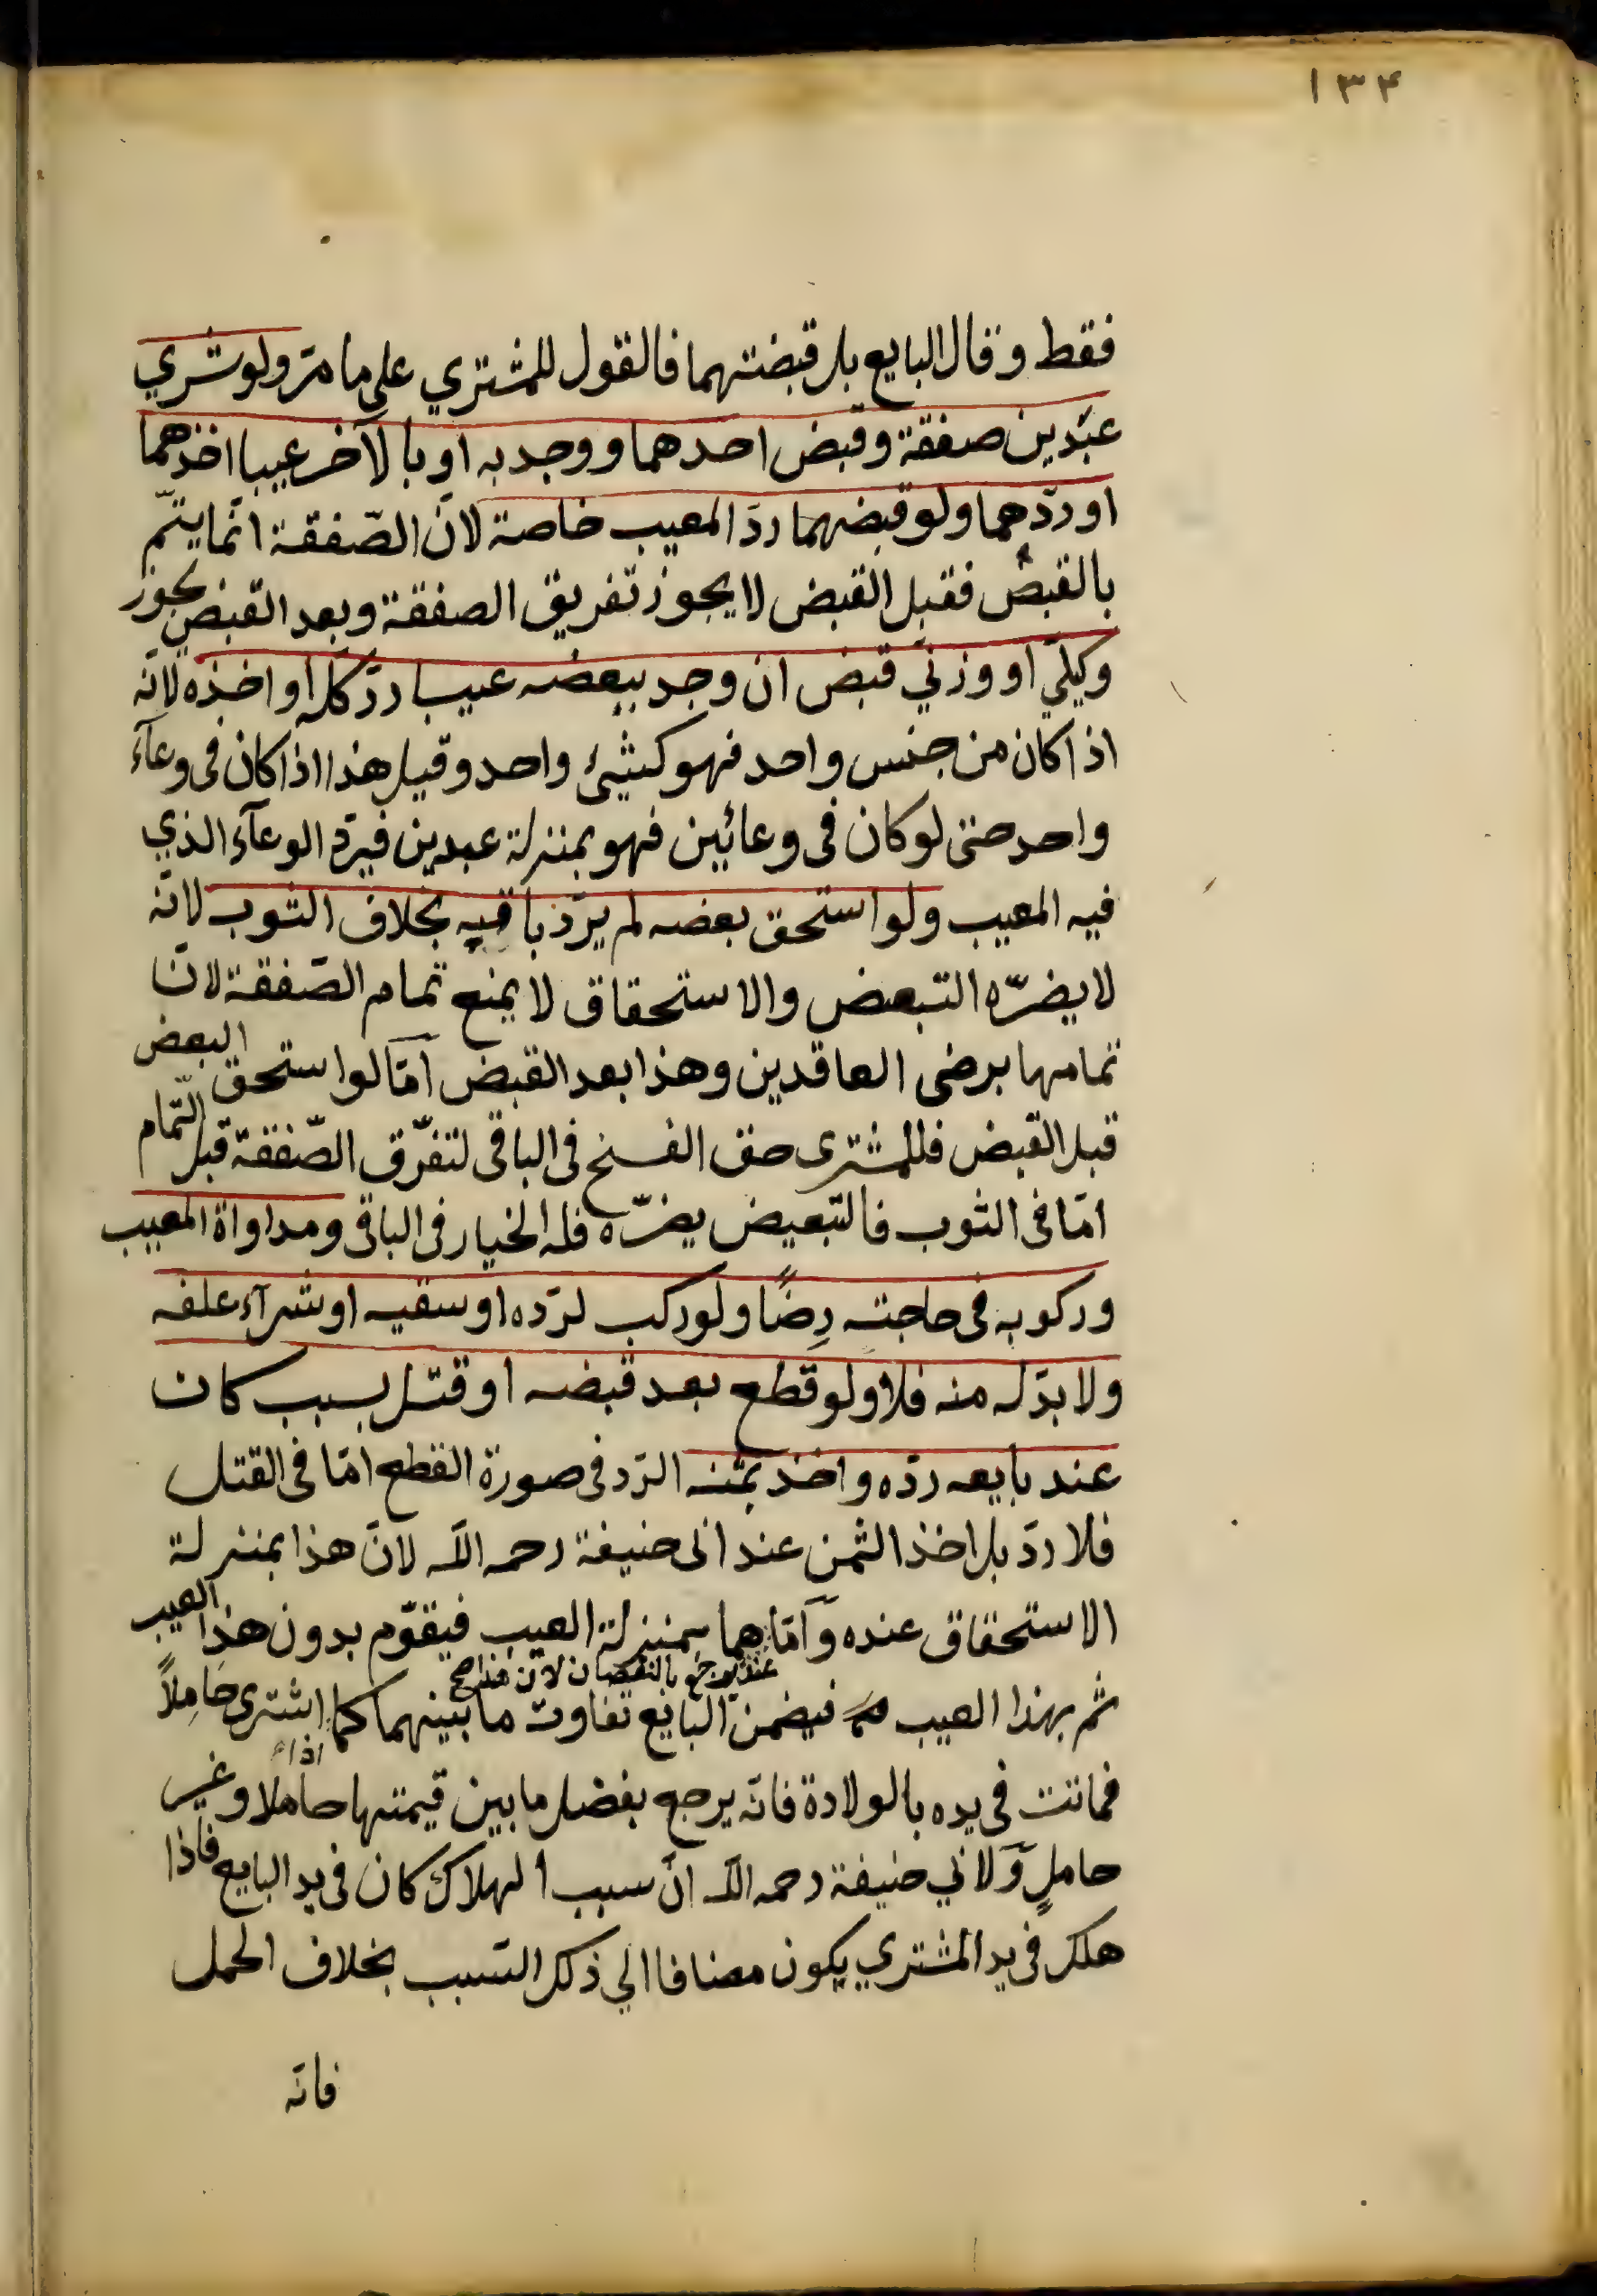 ١٣۴
فقط وقال البايع بل قبضتهما فالقول للمشتري على ما مرّ ولو شري
عبدين صفقة وقبض احدهما ووجد به او بالآخر عيبا اخذهما
او ردّهما ولو قبضهما ردّ المعيب خاصة لانّ الصّفقة انّما يتمّ
بالقبض فقبل القبض لا يجوز تفريق الصفقة وبعد القبض يجوز
وكيليّ او وزنيّ قبض ان وجد ببعضه عيبا ردّ كله او اخذه لانّه
اذا كان من جنس واحد فهو كشيئ واحد وقيل هذا اذا كان فى وعآء
واحد حتى لو كان فى وعائين فهو بمنزلة عبدين فيردّ الوعآء الذي
فيه المعيب ولو استحق بعضه لم يردّ باقيه بخلاف الثوب لانّه
لا يضرّه التبعض والاستحقاق لا يمنع تمام الصّفقة لانّ
تمامها برضى العاقدين وهذا بعد القبض امّا لو استحق البعض
قبل القبض فللمشترى حق الفسخ فى الباقى لتفرّق الصّفقة قبل التّمام
امّا فى الثوب فالتبعيض يضرّه فله الخيار فى الباقى ومداواة المعيب
وركوبه فى حاجته رضًا ولو ركب لردّه او سقيه او شرآء علفه
ولا بدّ له منه فلا ولو قطع بعد قبضه او قتل بسبب كان
عند بايعه ردّه واخذ ثمنه الردّ فى صورة القطع امّا فى القتل
فلا ردّ بل اخذ الثمن عند ابى حنيفة رحمه الله لانّ هذا بمنزلة
الاستحقاق عنده وامّا هما بمنزلة العيب فيقوّم بدون هذا العيب
عندهما يرجع بالنقصان لانّ هذا صح
ثم بهذا العيب فيضمن البايع تفاوت ما بينهما كما اذا اشترى حاملًا
فماتت فى يده بالولادة فانّه يرجع بفضل ما بين قيمتها حاملا وغير
حاملٍ ولابي حنيفة رحمه الله انّ سبب الهلاك كان فى يد البايع فاذا
هلك فى يد المشتري يكون مضافا الي ذلك السّبب بخلاف الحمل
فانّه